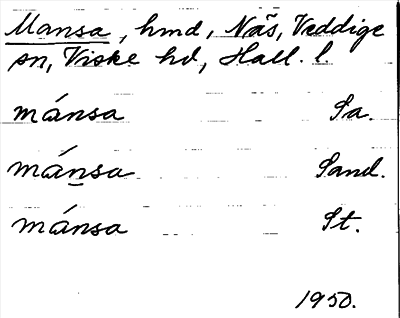 Mansa, hmd, Näs, Veddige
sn, Viske hd, Hall. l.
mánsa Sa.
máṉsa Sand.
mánsa St.
1950.